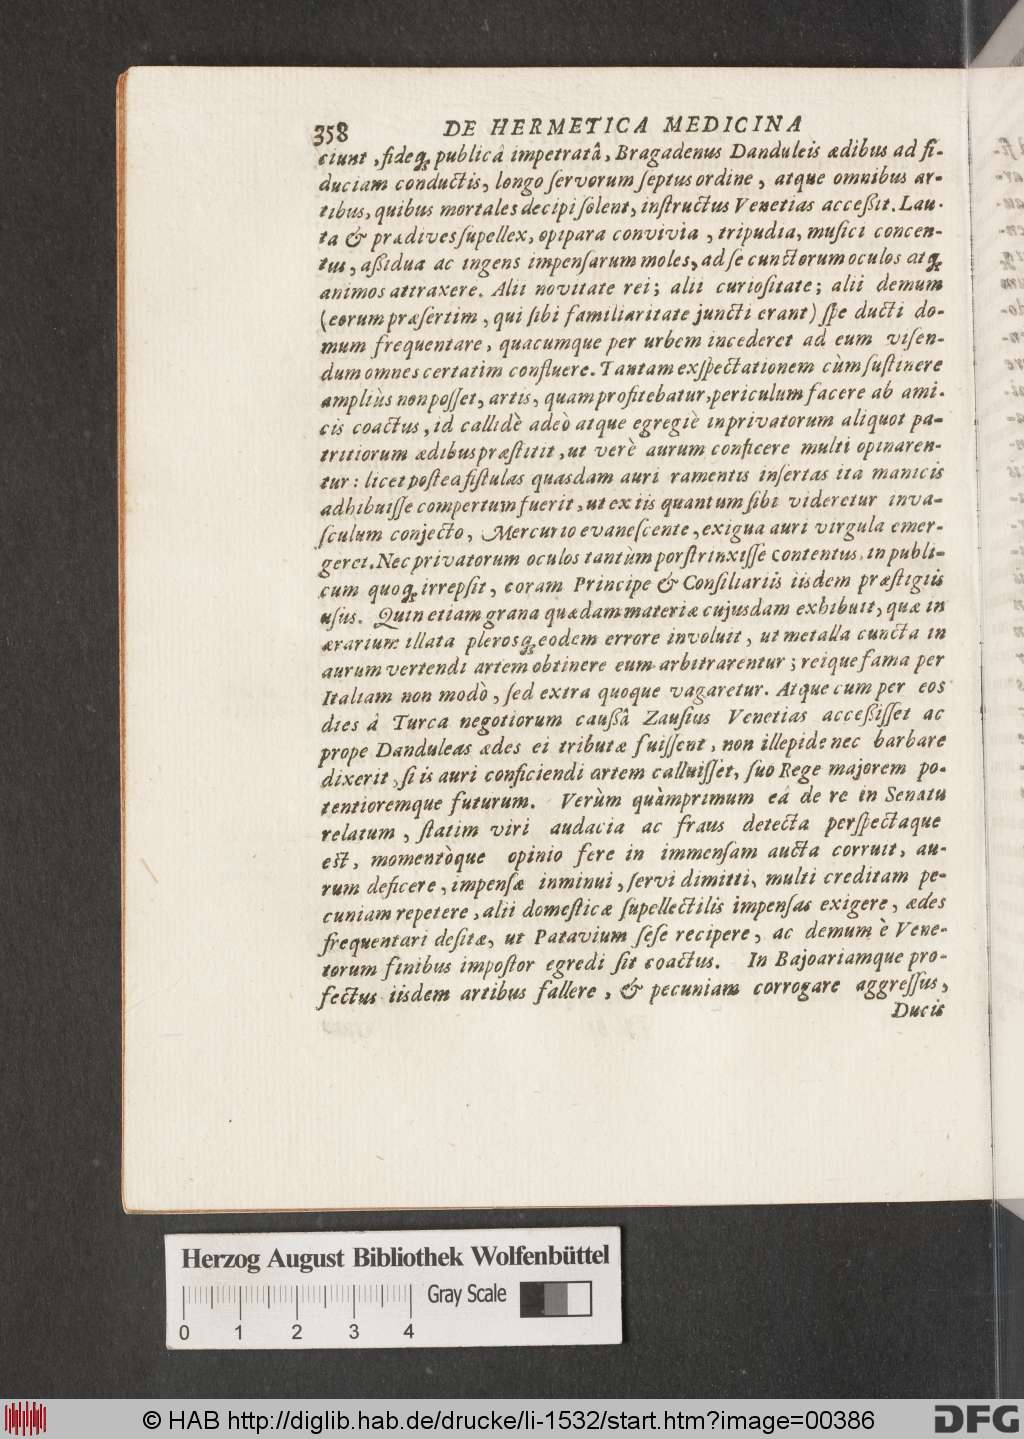 358 DE HERMETICA MEDICINA
ciunt, fideq́; publicâ impetratâ, Bragadenus Danduleis ædibus ad fi-
duciam conductis, longo ſervorum ſeptus ordine, atque omnibus ar-
tibus, quibus mortales decipi ſolent, inſtructus Venetias acceßit. Lau-
ta & prædives ſupellex, opipara convivia, tripudia, muſici concen-
tus, aßidua ac ingens impenſarum moles, ad ſe cunctorum oculos atq́;
animos attraxere. Alii novitate rei; alii curioſitate; alii demum
(eorum præſertim, qui ſibi familiaritate juncti erant) ſpe ducti do-
mum frequentare, quacumque per urbem incederet ad eum viſen-
dum omnes certatim confluere. Tantam exſpectationem cùm ſuſtinere
ampliùs non poſſet, artis, quam profitebatur, periculum facere ab ami-
cis coactus, id callidè adeò atque egregiè in privatorum aliquot pa-
tritiorum ædibus præſtitit, ut verè aurum conficere multi opinaren-
tur: licet poſtea fiſtulas quasdam auri ramentis inſertas ita manicis
adhibuiſſe compertum fuerit, ut ex iis quantum ſibi videretur in va-
ſculum conjecto, Mercurio evaneſcente, exigua auri virgula emer-
geret. Nec privatorum oculos tantùm porſtrinxiſſe contentus, in publi-
cum quoq́; irrepſit, coram Principe & Conſiliariis iisdem præſtigiis
uſus. Quin etiam grana quædam materiæ cujusdam exhibuit, quæ in
ærarium illata plerosq́; eodem errore involuit, ut metalla cuncta in
aurum vertendi artem obtinere eum arbitrarentur; reique fama per
Italiam non modò, ſed extra quoque vagaretur. Atque cum per eos
dies à Turca negotiorum caußâ Zauſius Venetias acceßiſſet ac
prope Danduleas ædes ei tributæ fuiſſent, non illepide nec barbare
dixerit, ſi is auri conficiendi artem calluiſſet, ſuo Rege majorem po-
tentioremque futurum. Verùm quàmprimum eâ de re in Senatu
relatum, ſtatim viri audacia ac fraus detecta perſpectaque
eſt, momentòque opinio fere in immenſam aucta corruit, au-
rum deficere, impenſæ inminui, ſervi dimitti, multi creditam pe-
cuniam repetere, alii domeſticæ ſupellectilis impenſas exigere, ædes
frequentari deſitæ, ut Patavium ſeſe recipere, ac demum è Vene-
torum finibus impoſtor egredi ſit coactus. In Bajoariamque pro-
fectus iisdem artibus fallere, & pecuniam corrogare aggreſſus,
Ducis
Herzog August Bibliothek Wolfenbüttel
Gray Scale
0 1 2 3 4
© HAB http://diglib.hab.de/drucke/li-1532/start.htm?image=00386
DFG